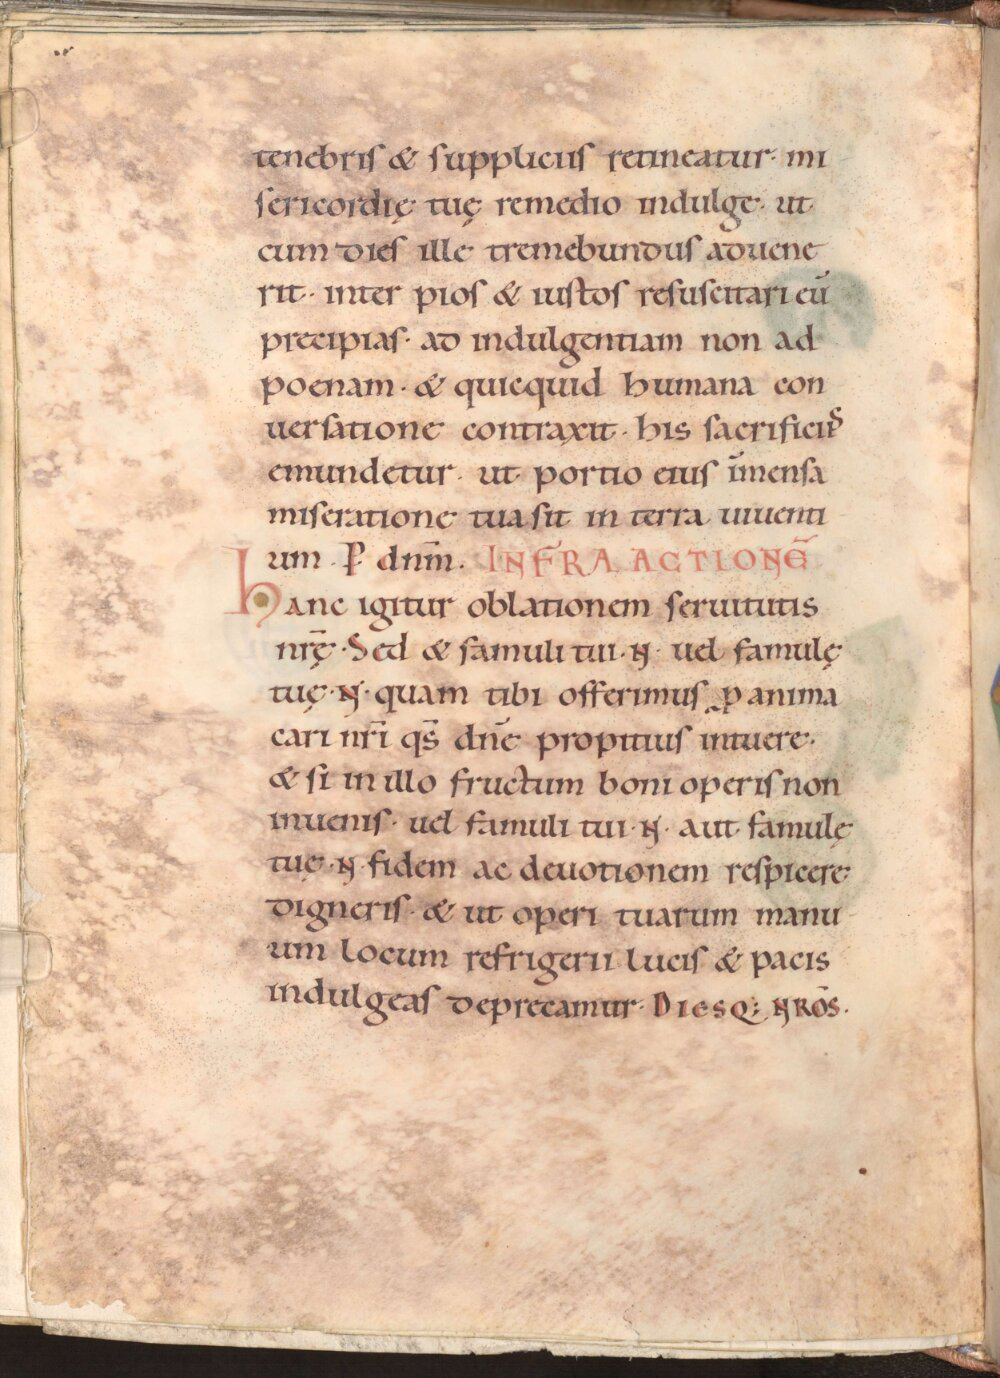 tenebris & suppliciis retineatur· mi
sericordię tuę remedio indulge· ut
cum dies ille tremebundus aduene
rit·· inter pios & iustos resuscitari eū
precipias· ad indulgentiam non ad
poenam· & quicquid humana con
uersatione contraxit· his sacrificiis
emundetur· ut portio eius īmensa
miseratione tua sit in terra uiuenti
um· P̄ dnm̄. INFRA ACTIONĒ
hanc igitur oblationem seruitutis
nrę̄· Sed & famuli tui· N̄· uel famulę
tuę· N̄· quam tibi offerimus ꝓ anima
cari nr̄i qs̄ dn̄e propitius intuere·
& si in illo fructum boni operis non
inuenis· uel famuli tui· N̄· aut famulę
tuę· N̄· fidem ac deuotionem respicere
digneris· & ut operi tuarum manu
um locum refrigerii lucis & pacis
indulgeas deprecamur· DIESQ: NRŌS·